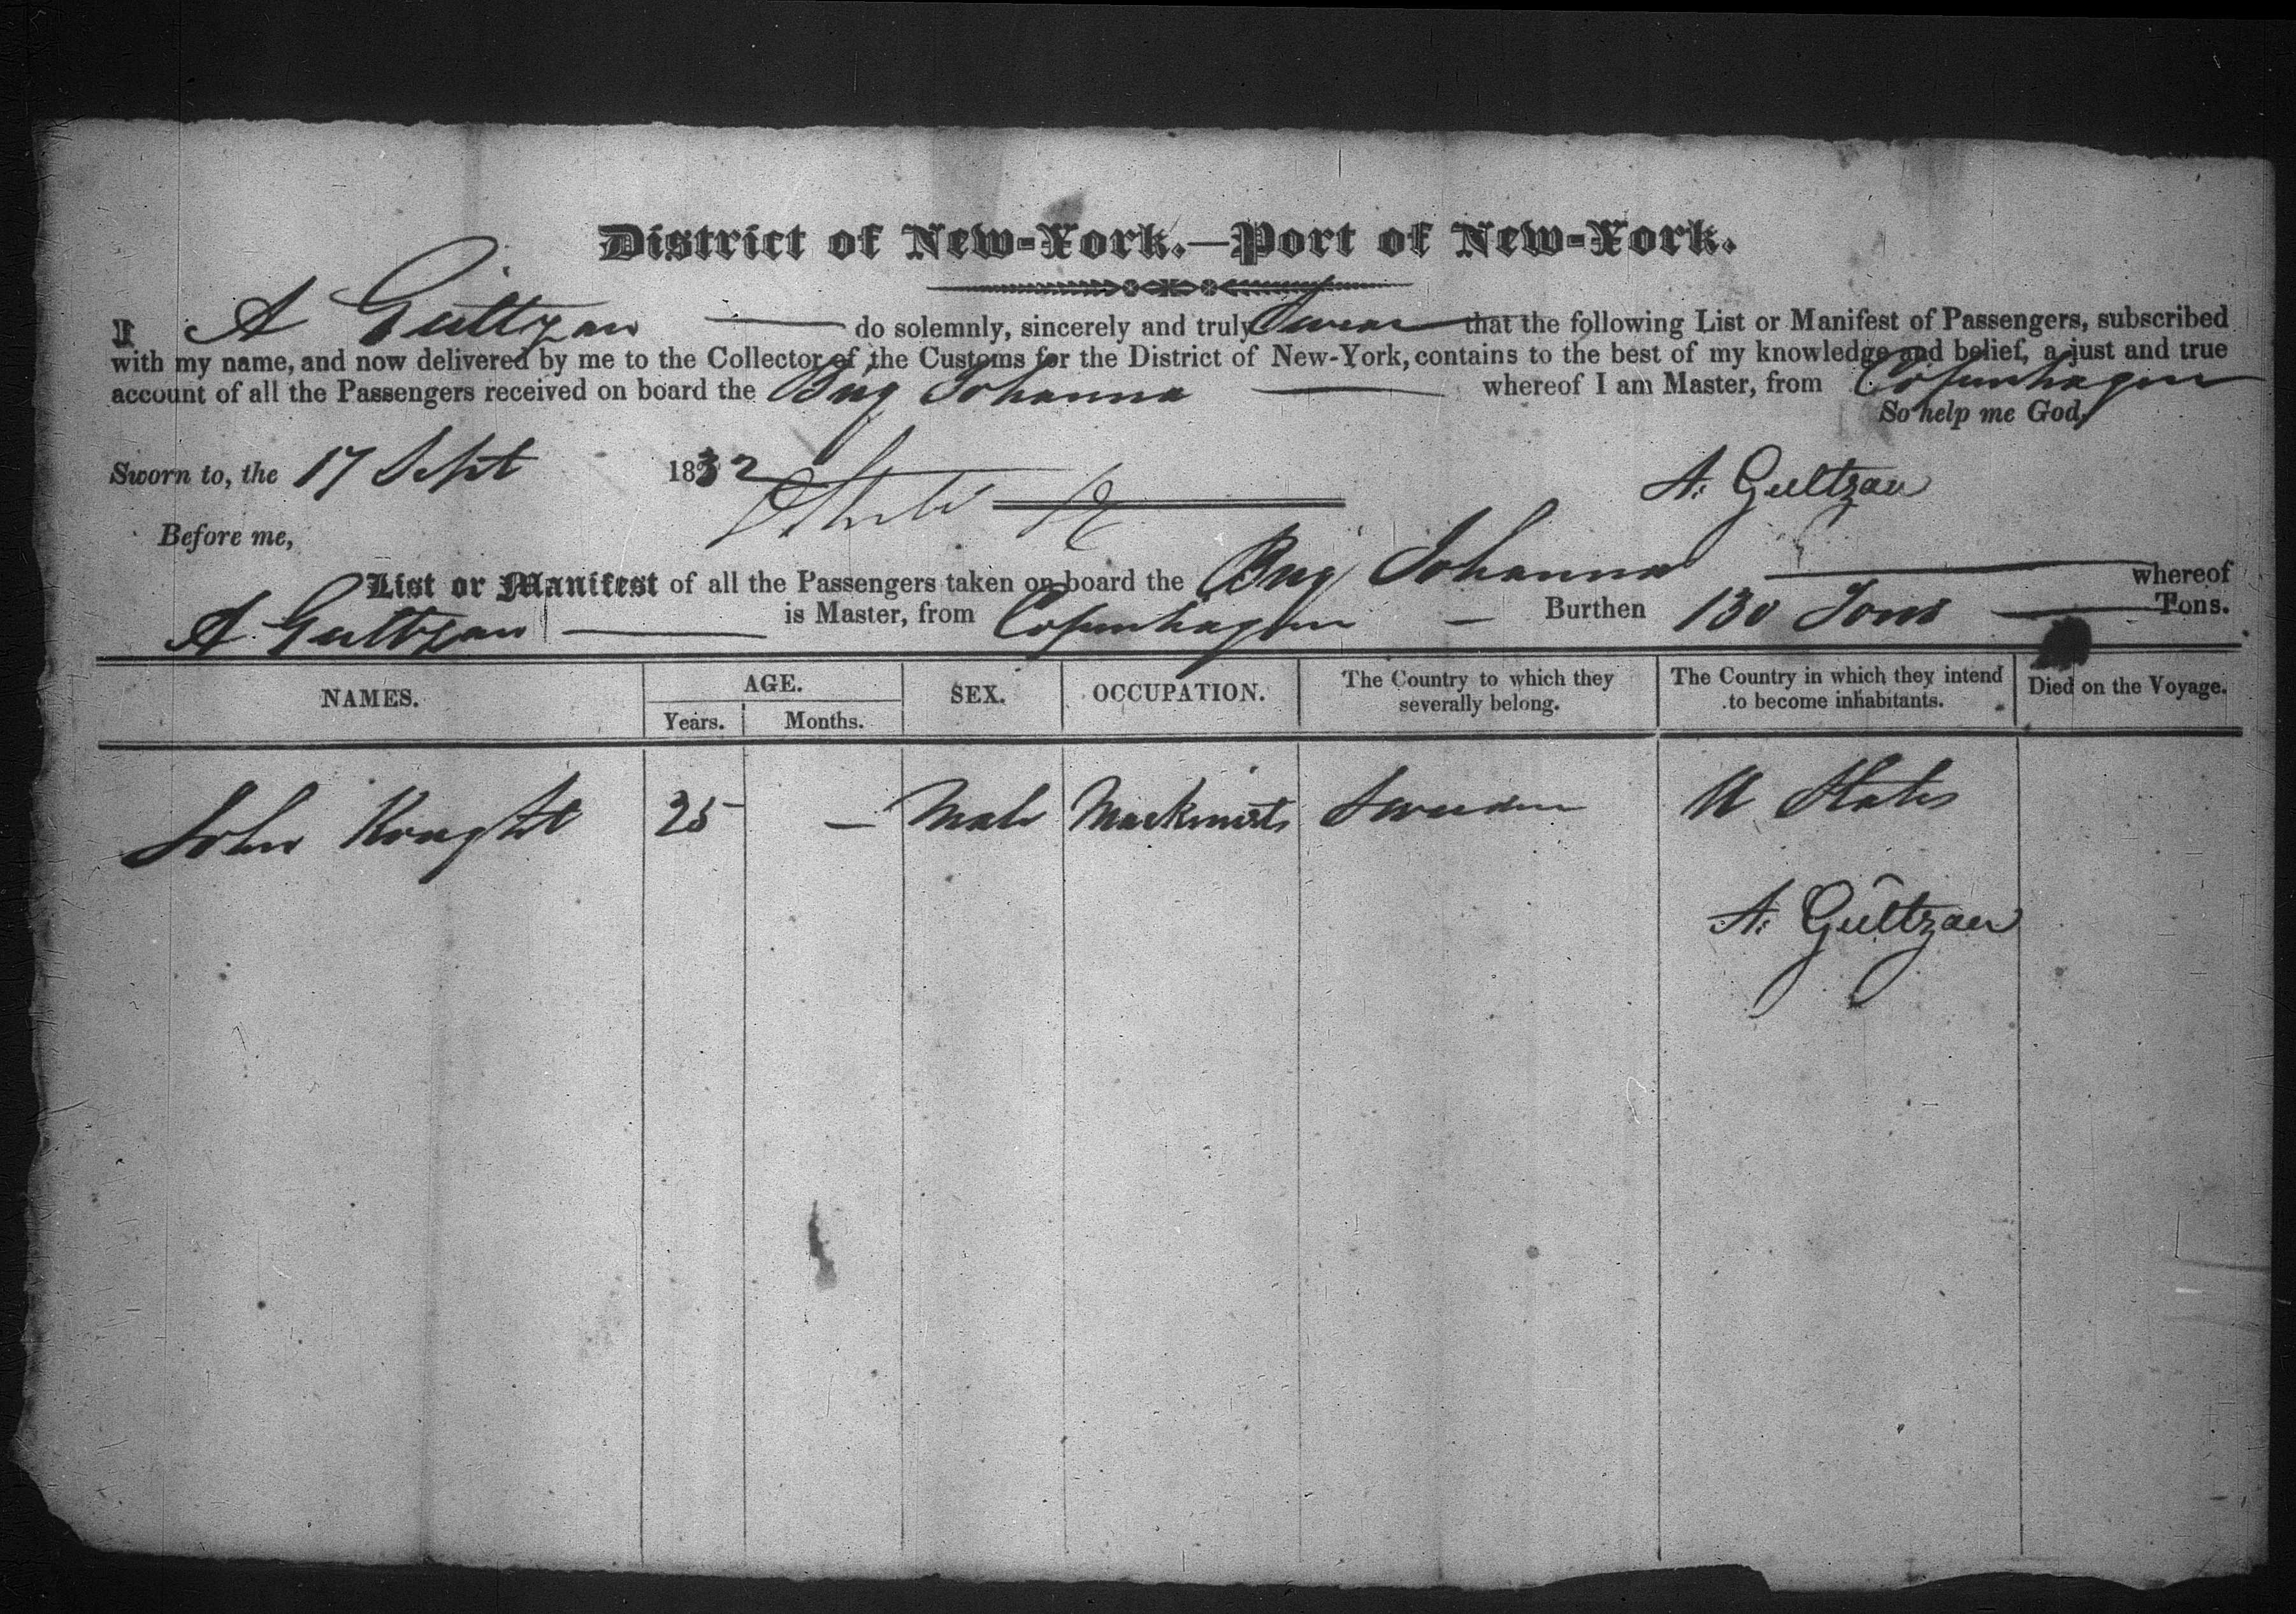 District of New-York.—Port of New-York.
I A Gültzau do solemnly, sincerely and truly Swear that the following List or Manifest of Passengers, subscribed
with my name, and now delivered by me to the Collector of the Customs for the District of New-York, contains to the best of my knowledge and belief, a just and true
account of all the Passengers received on board the Brig Johanna whereof I am Master, from Copenhagen
So help me God,
Sworn to, the 17 Sept 1832
A. Gültzau
Before me,
List or Manifest of all the Passengers taken on board the Brig Johanna whereof
A Gultzau is Master, from Copenhagen — Burthen 130 Tons Tons.
NAMES. AGE. SEX. OCCUPATION. The Country to which they severally belong. The Country in which they intend to become inhabitants. Died on the Voyage.
Years. Months.
John 25 — Male Mackinist Sweeden U States
A. Gültzau